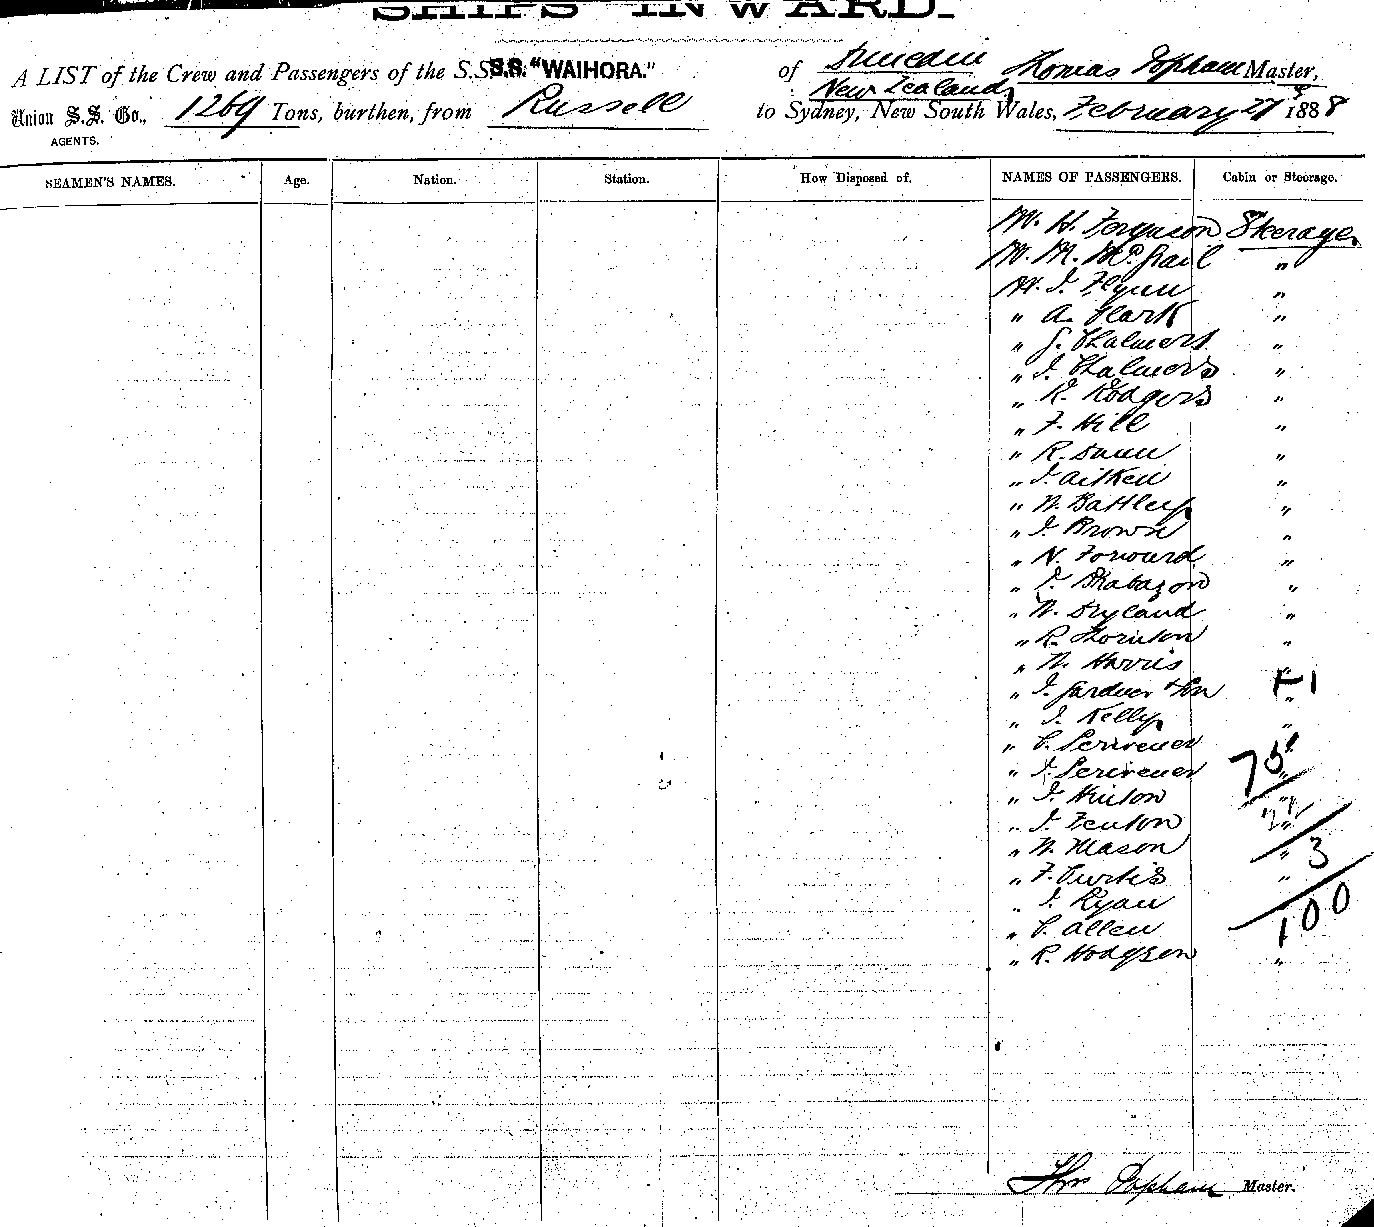 SHIPS INWARD.
A LIST of the Crew and Passengers of the S.S. S.S. "WAIHORA." of Dunedin Thomas Popham Master,
New Zealand,
Union S.S. Co., 1269 Tons, burthen, from Russell to Sydney, New South Wales, February 27 1888
AGENTS.
SEAMEN'S NAMES. Age. Nation. Station. How Disposed of. NAMES OF PASSENGERS. Cabin or Steerage.
M. H. Ferguson Steerage
M. M. McPhail "
M. J. Flynn "
" A. Clark "
" G. Chalmers "
" J. Chalmers "
" R. Rodgers "
" F. Hill "
" R. Dunn "
" J. Aitken "
" W. Battley "
" J. Brown "
" W. Forward "
" Brabazon "
" W. Dryland "
" R. Thornton "
" W. Harris "
" J. Gardner & Son " + 1
" J. Kelly "
" C. Scrivener "
" J. Scrivener " 75
" J. Hinton "
" J. Fenton "
" W. Mason " 3
" F. Curtis "
" J. Ryan "
" C. Allen 100
" R. Hodgson "
Thos Popham Master.